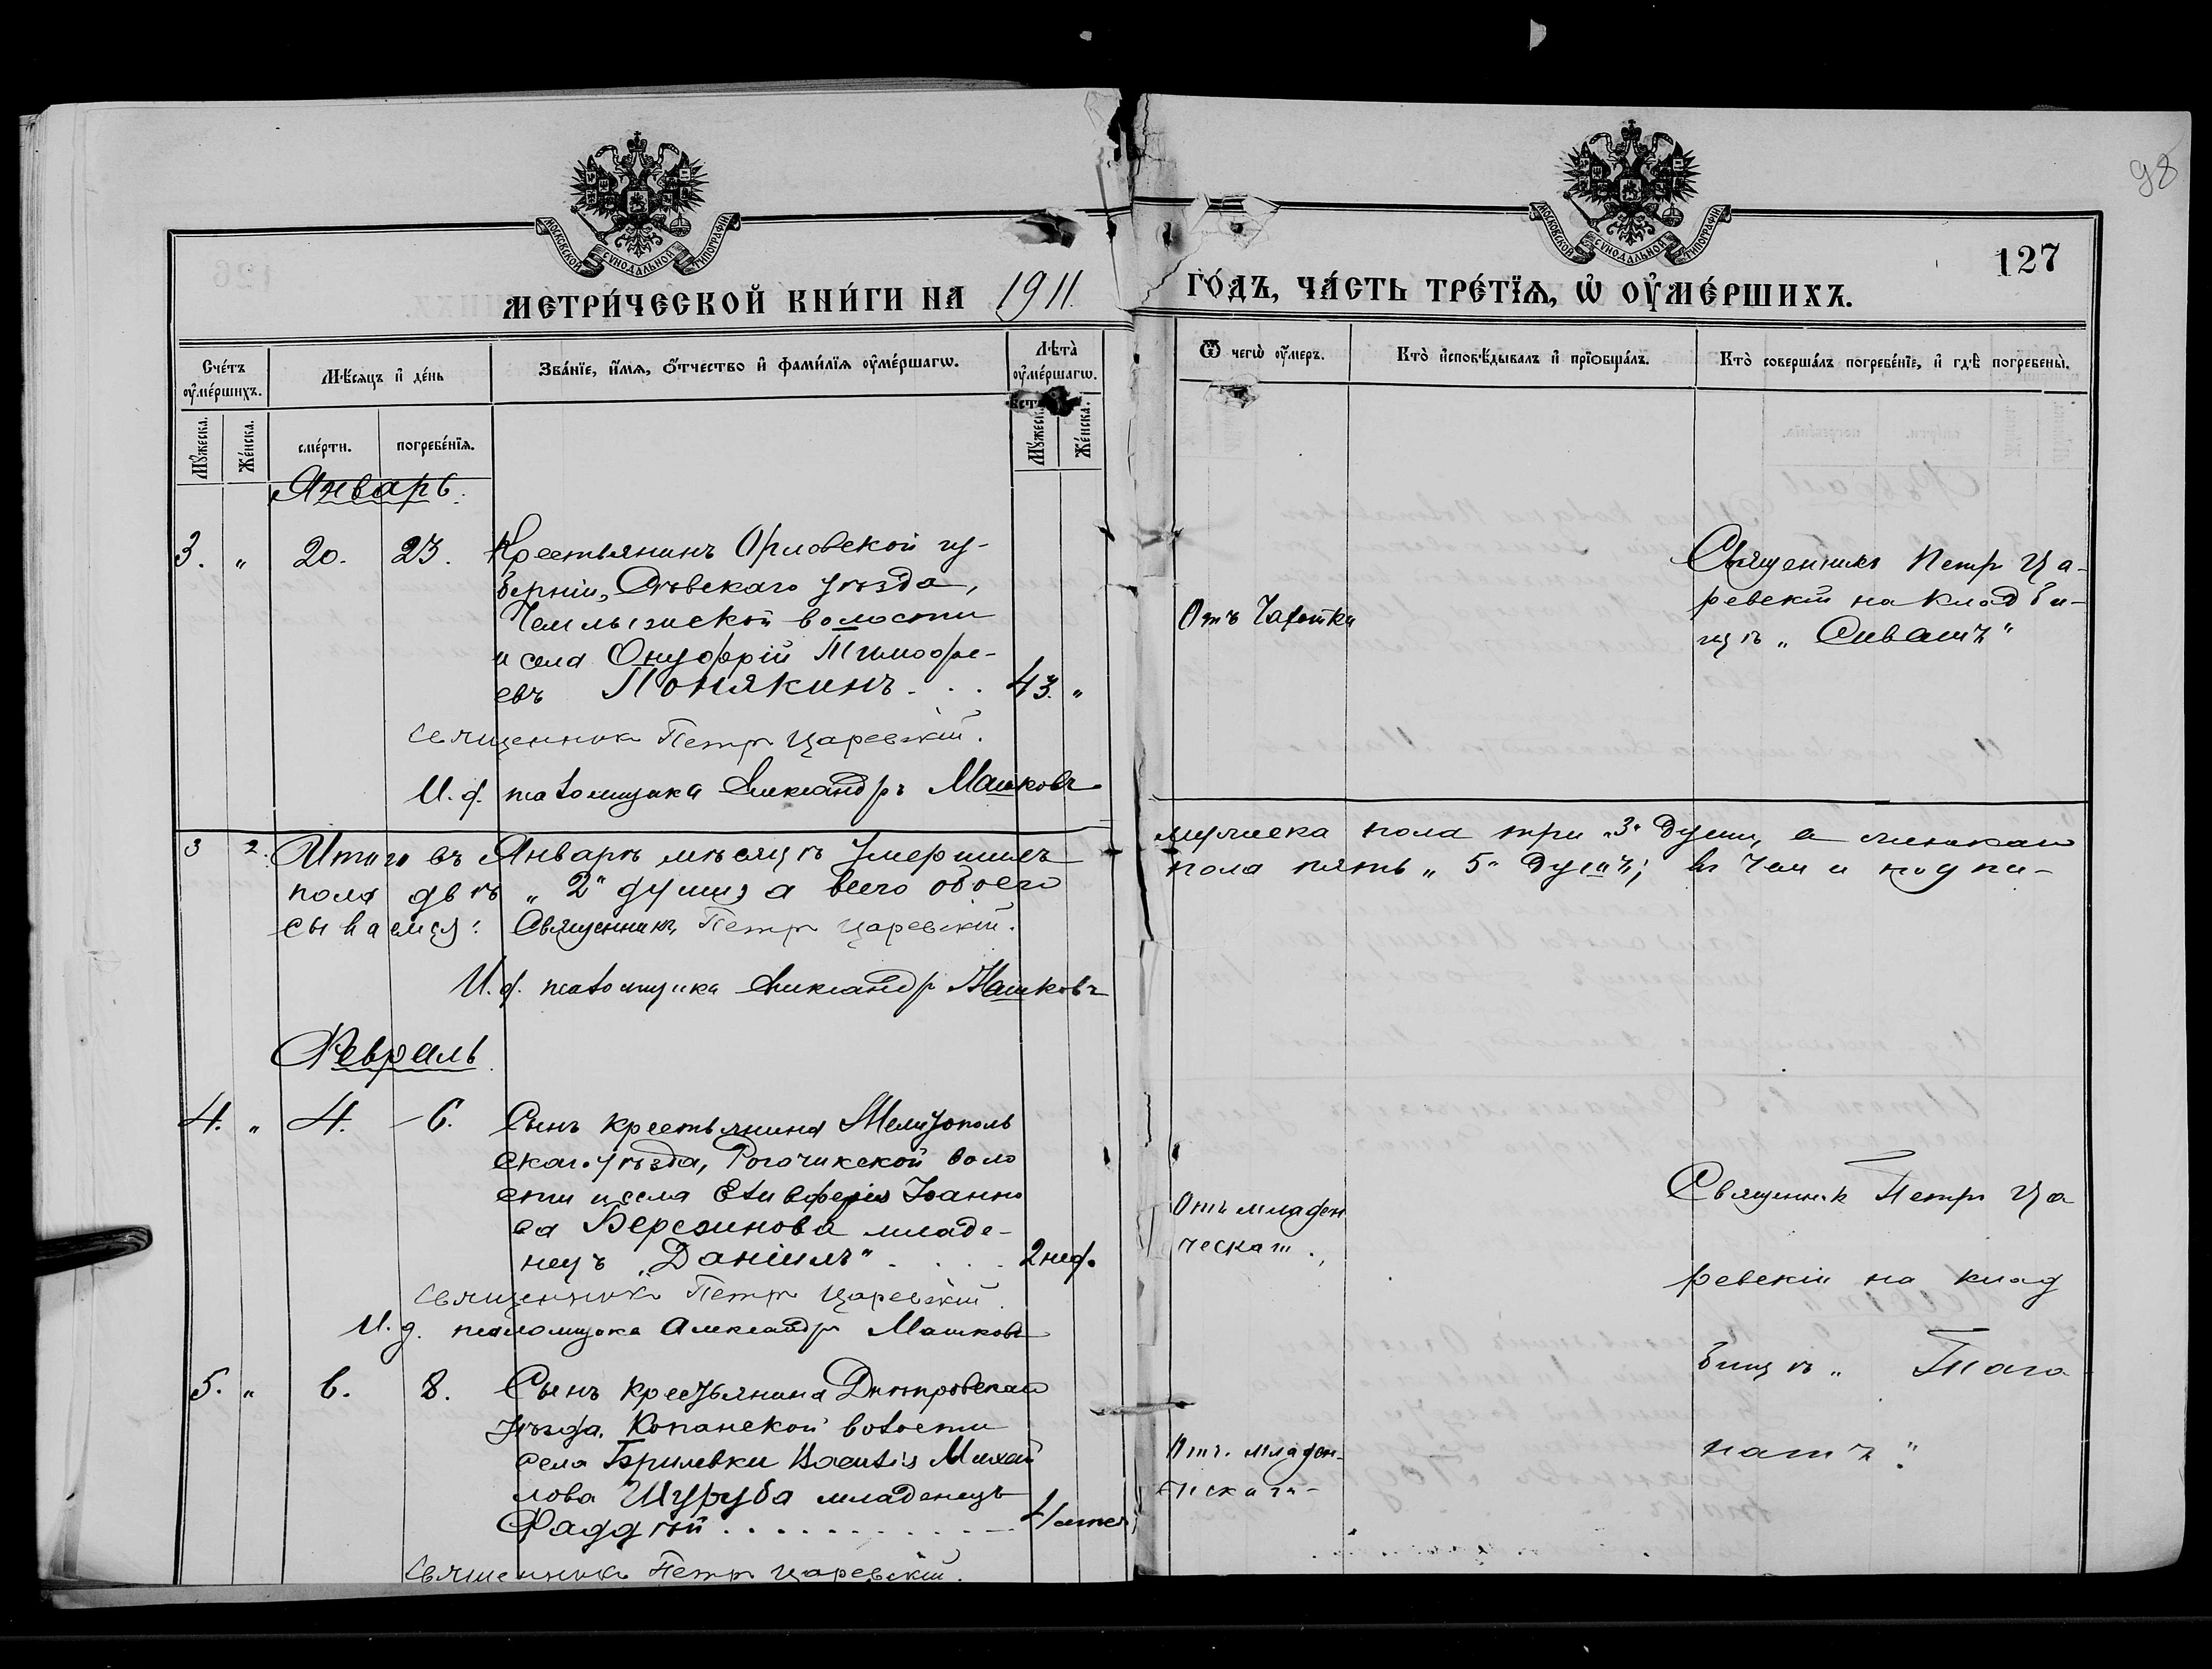 98
МОСКОВСКОЙ СУНОДАЛЬНОЙ ТИПОГРАФІИ
МОСКОВСКОЙ СУНОДАЛЬНОЙ ТИПОГРАФІИ
127
МЕТРИ́ЧЕСКОЙ КНИ́ГИ НА 1911. ГО́ДЪ, ЧА́СТЬ ТРЕ́ТЇѦ, Ѡ҆ ОУ҆МЕ́РШИХЪ.
Сче́тъ оу҆ме́ршихъ.
Мꙋ́жеска.
Же́нска.
Мѣ́сяцъ и҆ де́нь
сме́рти.
погребе́нїѧ.
Зва́нїе, и҆́мѧ, ѻ҆́тчество и҆ фами́лїѧ оу҆ме́ршагѡ.
Лѣта̀ оу҆ме́ршагѡ.
Мꙋ́жеска.
Же́нска.
Ѿ чегѡ̀ оу҆́меръ.
Кто̀ и҆сповѣ́дывалъ и҆ прїѡбща́лъ.
Кто̀ соверша́лъ погребе́нїе, и҆ гдѣ̀ погребены̀.
Январь.
3. " 20. 23. Крестьянинъ Орловской гу-
берніи, Сѣвскаго уѣзда,
волости
и села Онуфрій Тимофе-
евъ Понякинъ . . . 43. "
Отъ Чахотки
Священникъ Петръ Ца-
ревскій на кладби-
щѣ „Сивашъ"
Священникъ Петръ Царевскій.
И.д. псаломщика Александръ Машковъ
3 2. Итого въ Январѣ мѣсяцѣ умершихъ мужеска пола три „3" души, а женскаго
пола двѣ „2" души, а всего обоего пола пять „5" душъ; въ чем и подпи-
сываемся: Священникъ Петръ Царевскій.
И.д. псаломщика Александръ Машковъ
Февраль.
4. " 4. 6. Сынъ крестьянина Мелитополь
скаго уѣзда, Рогачикской воло
сти и села Елевферія Іоанно
ва Березинова младе-
нецъ „Даніилъ" . . . . 2 нед.
Отъ младен
ческаг.
Священник Петръ Ца
ревскій на клад
бищѣ „Тага
натъ".
Священникъ Петръ Царевскій.
И.д. псаломщика Александръ Машковъ
5. " 6. 8. Сынъ крестьянина Днѣпровскаго
уѣзда, Копанской волости
села Бриловки Михай
лова Шуруба младенецъ
Фаддѣй . . . . . . . . . .
Отъ младен-
ческаго
Священникъ Петръ Царевскій.